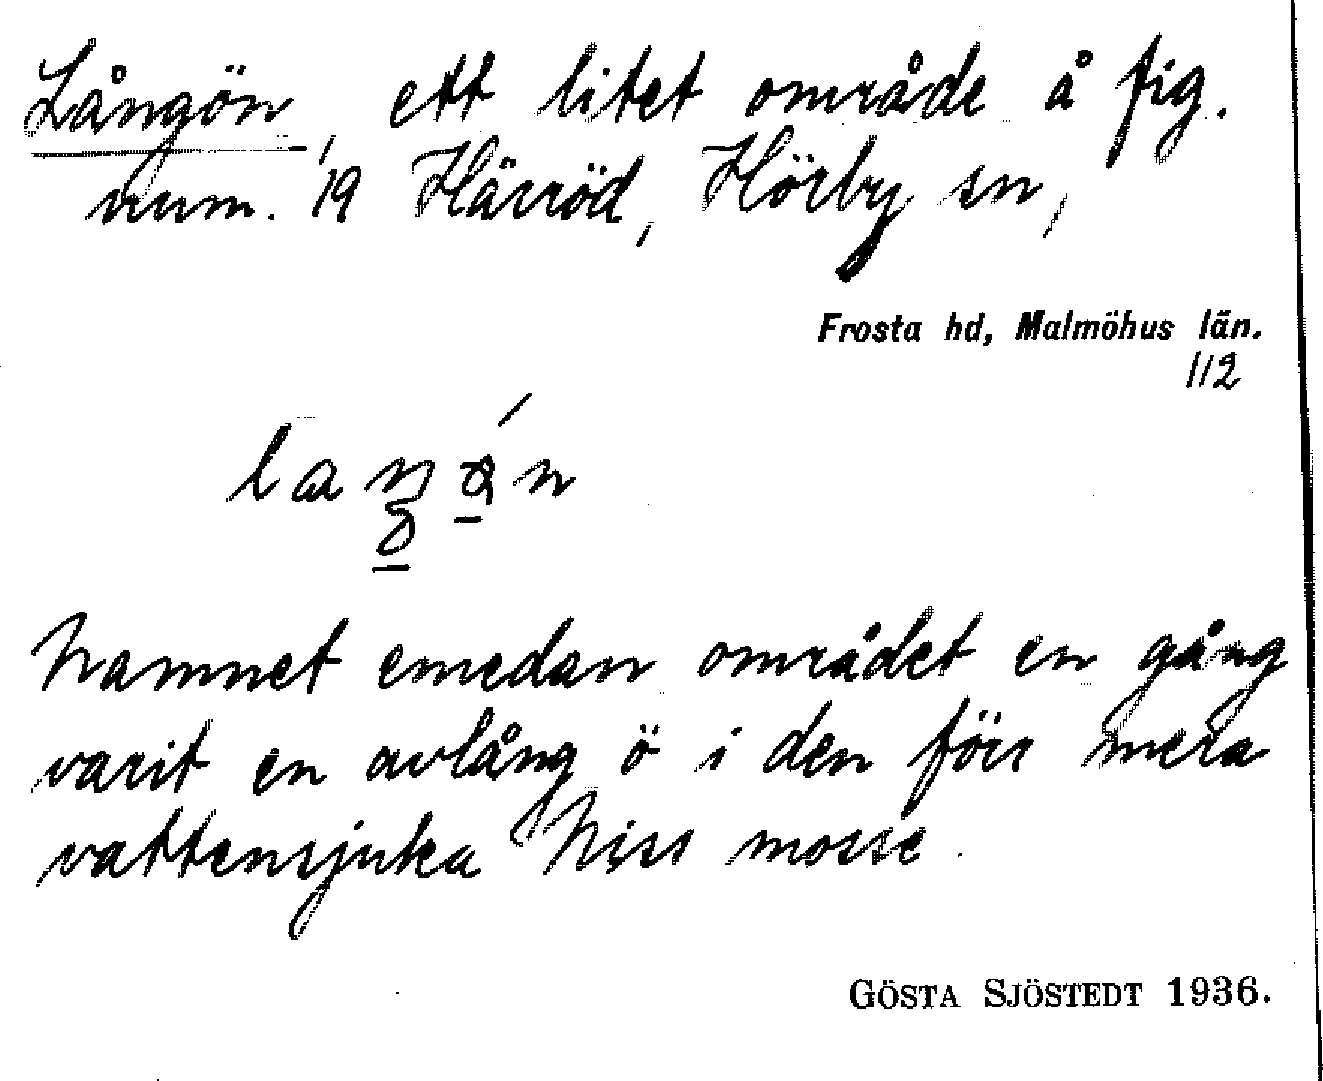 Långön, ett litet område å fig.
num. 19 Härröd, Hörby sn,
Frosta hd, Malmöhus län.
112
Namnet emedan området en gång
varit en avlång ö i den förr mera
vattensjuka Niss mosse.
GÖSTA SJÖSTEDT 1936.